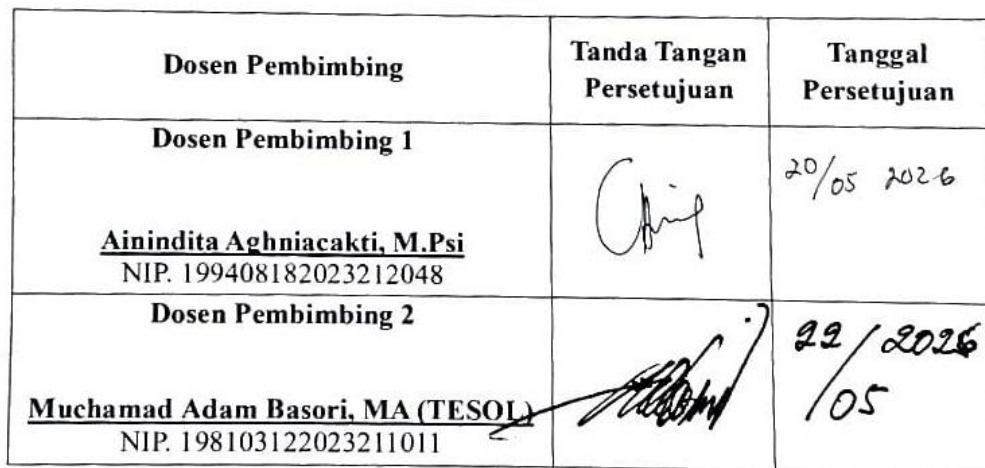 Dosen Pembimbing
Tanda Tangan
Persetujuan
Tanggal
Persetujuan
Dosen Pembimbing 1
Ainindita Aghniacakti, M.Psi
NIP. 199408182023212048
20/05 2026
Dosen Pembimbing 2
Muchamad Adam Basori, MA (TESOL)
NIP. 198103122023211011
22/05 2026